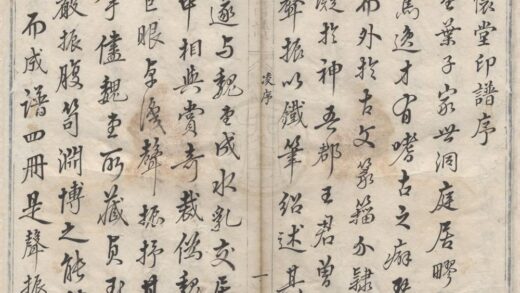 懷堂印譜序
葉子家世洞庭居
逸才有嗜古之癖
而外於古文篆籀分隸
於神吾郡王君曾
聲振以鐵筆紹述其
凌序
一
遂与魏成水乳交
中相與賞奇裁偽魏
巨眼卓識聲振抒其
手儘魏所藏貞
嚴振腹笥淵博之能
而成譜四冊是聲振